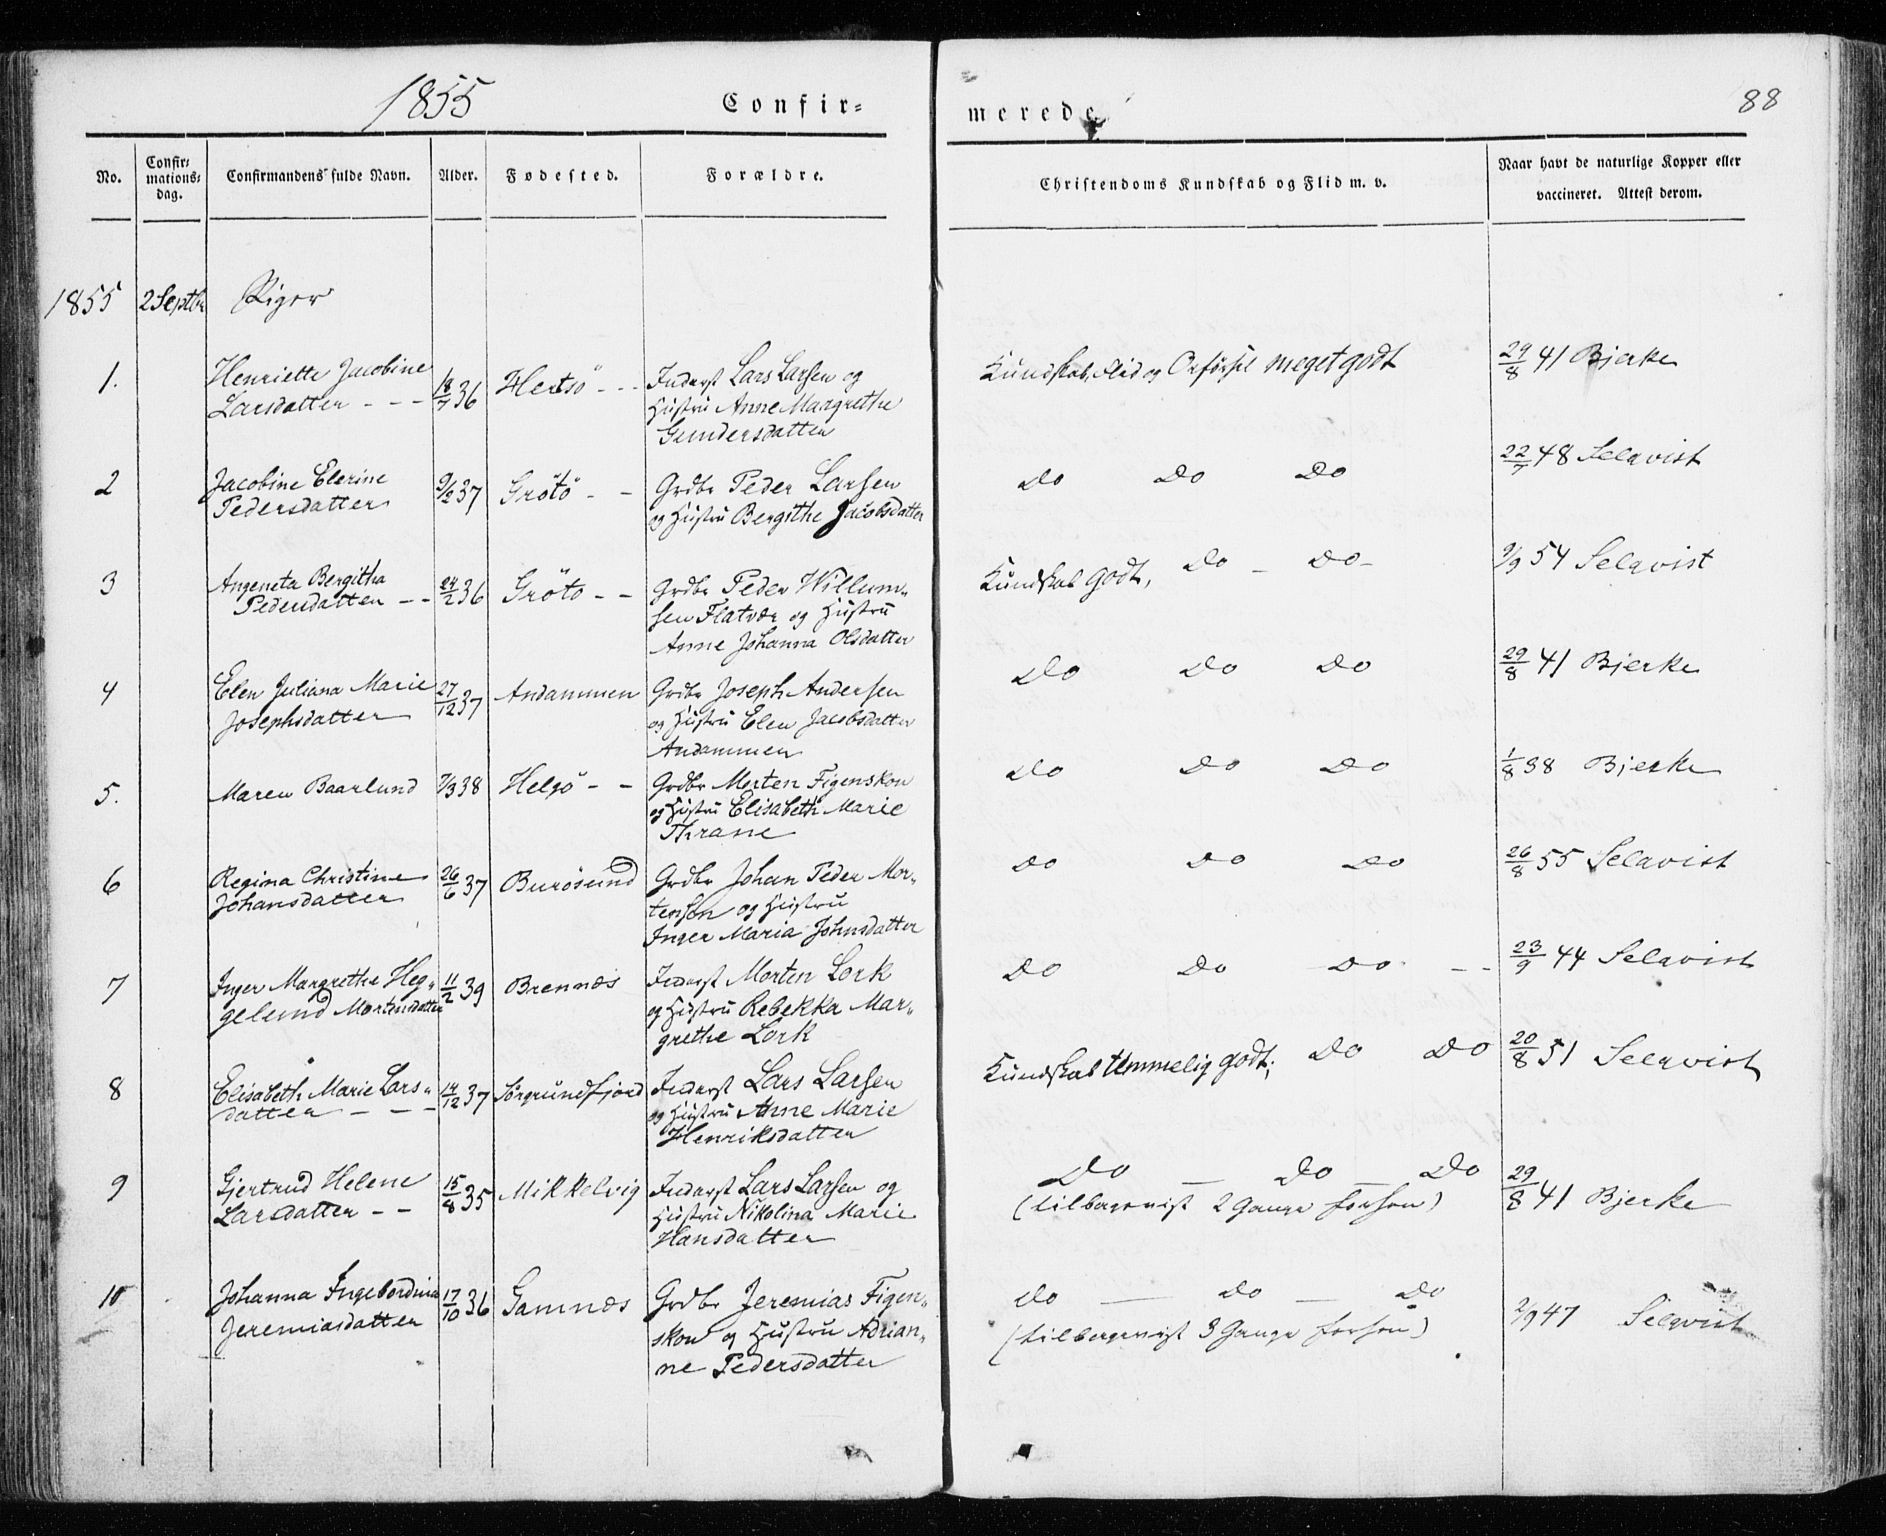 1855
Confir=
merede.
88
No.
Confir=
mations=
dag.
Confirmandens fulde Navn.
Alder.
Fødested.
Forældre.
Christendoms Kundskab og Flid m. v.
Naar havt de naturlige Kopper eller
vaccineret. Attest derom.
1855 2 Septbr Piger
1. Henriette Jacobine 18/7 36 Hertsö - - - Inderst Lars Larsen og Kundskab, Flid og Opförsel meget godt 29/8 41 Bjerke
Larsdatter - - - Hustru Anne Margrethe
Gundersdatter
2 Jacobine Elerine 9/2 37 Grötö - - Grdbr Peder Larsen Do Do Do 22/7 48 Selqvist
Pedersdatter og Hustru Bergithe Jacobsdatter
3 Angeneta Bergitha 24/2 36 Gröto - - Grdbr Peder Willum= Kundskab godt, Do - Do - 9/9 54 Selqvist
Pedersdatter - - sen Flatvær og Hustru
Anne Johanna Olsdatter
4 Elen Juliana Marie 27/12 37 Andammen Grdbr Joseph Andersen Do Do Do 29/8 41 Bjerke
Josephsdatter og Hustru Elen Jacobsdatter
Andammen
5. Maren Baarlund 7/3 38 Helgö - - Grdbr Morten Figenskou Do Do Do 1/8 38 Bjerke
og Hustru Elisabeth Marie
Thrane
6 Regina Christine 26/6 37 Burösund Grdbr Johan Peder Mor= Do Do Do 26/8 55 Selqvist
Johansdatter tensen og Hustru
Inger Maria Johnsdatter
7 Inger Margrethe Heg= 11/2 39 Brennæs Inderst Morten Lork Do Do Do - - 23/9 44 Selqvist
gelund Mortensdatter og Hustru Rebekka Mar=
grethe Lork
8 Elisabeth Marie Lars= 14/12 37 Sörgrundfjord Inderst Lars Larsen Kundskab temmelig godt; Do Do 20/8 51 Selqvist
datter - - - og Hustru Anne Marie
Henriksdatter
9 Gjertrud Helene 15/8 35 Mikkelvig Inderst Lars Larsen og Do - Do - Do 29/8 41 Bjerke
Larsdatter - - Hustru Nikolina Marie (tilbageviist 2 Gange forhen)
Hansdatter
10 Johanna Ingebordina 17/10 36 Gamnæs Grdbr Jeremias Figen= Do - Do - Do 2/9 47 Selqvist
Jeremiasdatter skou og Hustru Adrian= (tilbageviist 3 Gange forhen)
ne Pedersdatter